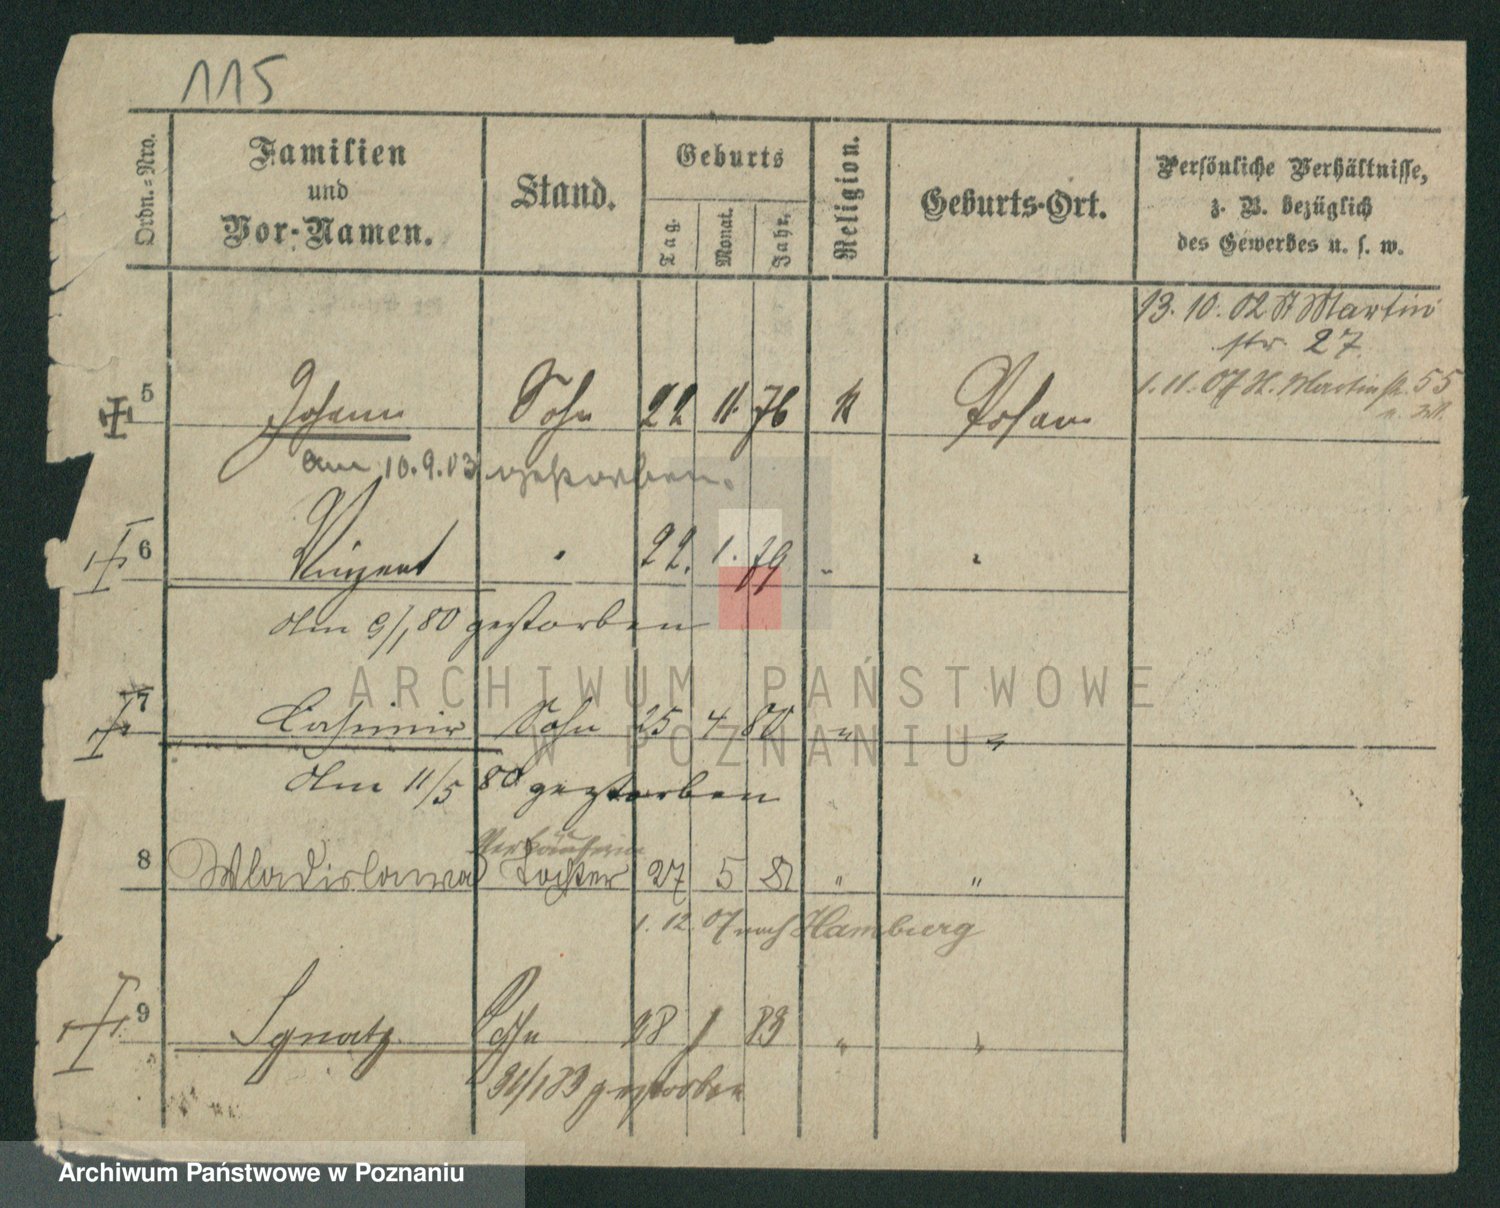 115
Ordn.-Nro.
Familien
und
Vor-Namen.
Stand.
Geburts
Tag.
Monat.
Jahr.
Religion.
Geburts-Ort.
Persönliche Verhältnisse,
z. B. bezüglich
des Gewerbes u. s. w.
13. 10. 02 St Martin
str. 27
1. 11. 07 St. Martinstr. 55
5 Johann Sohn 22 11. 76 k Posen
am 10. 9. 03 gestorben.
6 Vinzent " 22. 1. 79 " "
Am 9/1 80 gestorben
7 Casimir Sohn 25 4 80 " "
Am 11/5 80 gestorben
Verkäuferin
8 Wladislawa Tochter 27 5 81 " "
1. 12. 07 nach Hamburg
9 Ignatz Sohn 18 1 83 " "
31/1 83 gestorben
ARCHIWUM PAŃSTWOWE
W POZNANIU
Archiwum Państwowe w Poznaniu